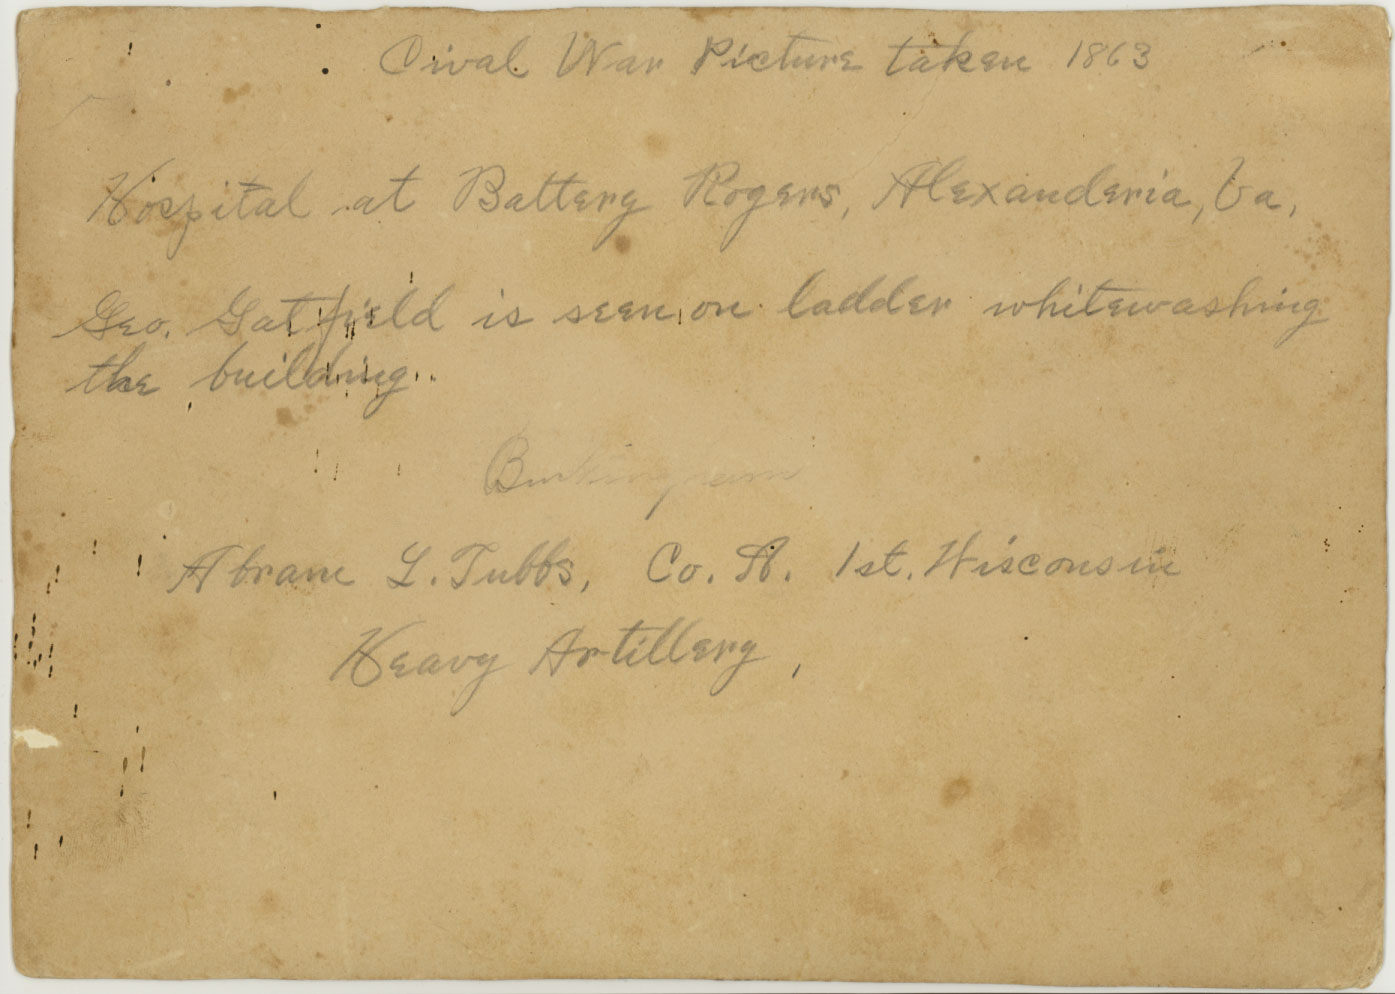 Cival War Picture taken 1863
Hospital at Battery Rogers, Alexanderia, Va.
Geo. Gatfield is seen on ladder whitewashing
the building.
Abram L. Tubbs, Co. A. 1st. Wisconsin
Heavy Artillery,